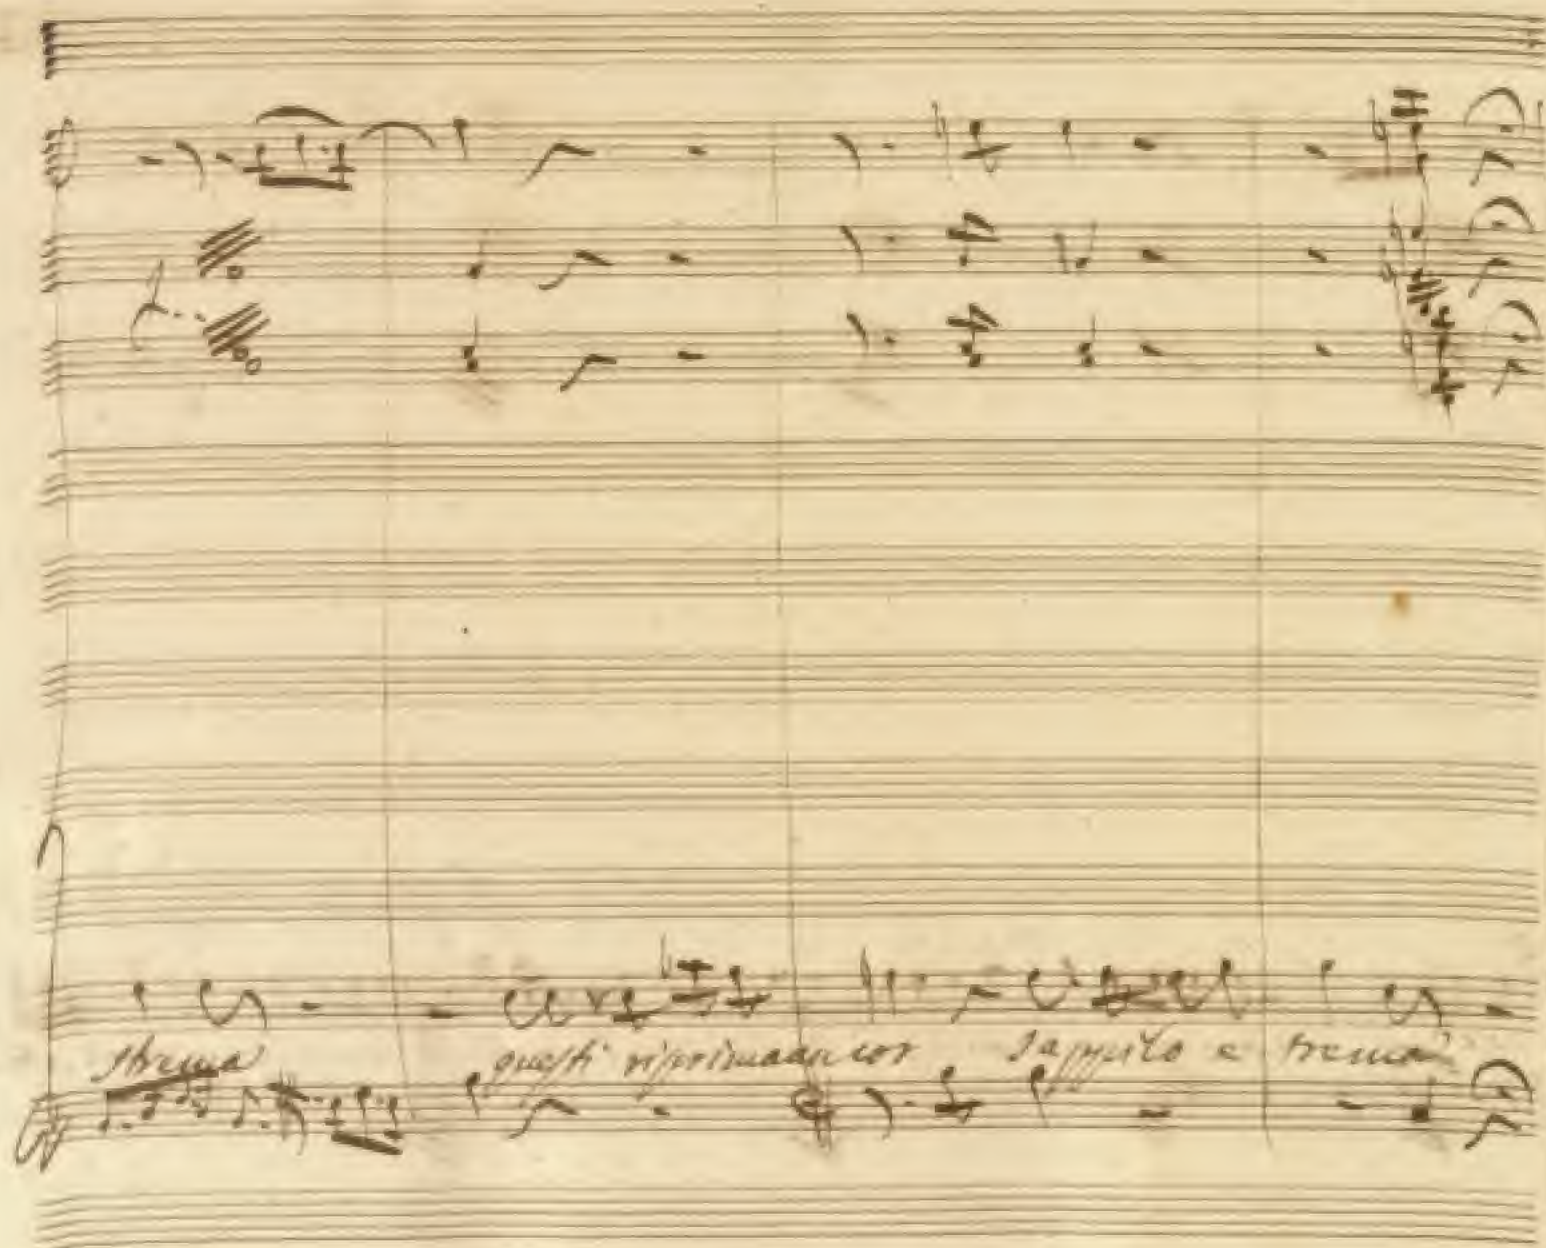 strema questi risprima ancor sappilo e trema